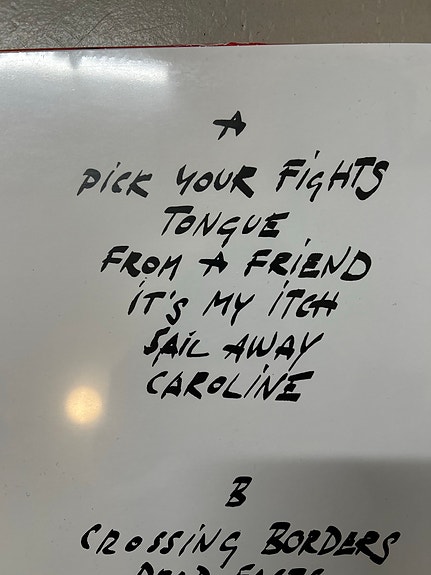 A
PiCK YOUR FiGHTS
TONGUE
FROM A FRiEND
iT'S MY iTCH
SAiL AWAY
CAROLiNE
B
CROSSiNG BORDERS